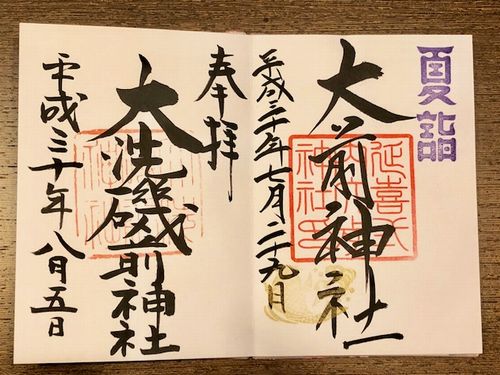 夏詣
大前神社
平成三十年七月二十九日
奉拝
大洗磯前神社
平成三十年八月五日